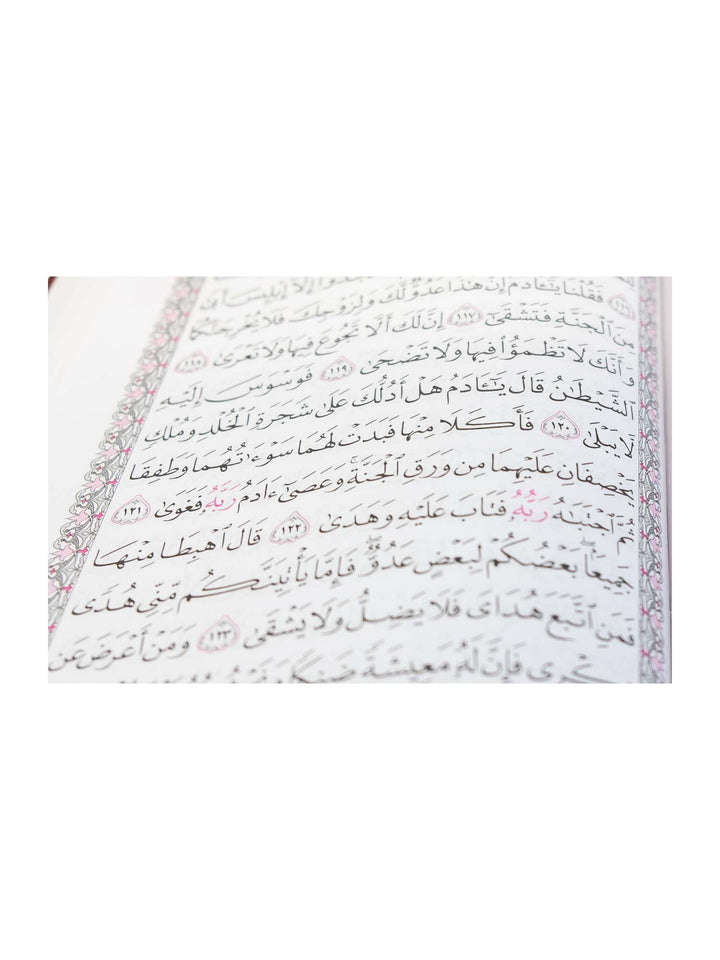 إِلَّآ إِبْلِيسَ أَبَىٰ
﴿١١٦﴾ فَقُلْنَا يَٰٓـَٔادَمُ إِنَّ هَٰذَا عَدُوٌّ لَّكَ وَلِزَوْجِكَ فَلَا يُخْرِجَنَّكُمَا
مِنَ ٱلْجَنَّةِ فَتَشْقَىٰٓ ﴿١١٧﴾ إِنَّ لَكَ أَلَّا تَجُوعَ فِيهَا وَلَا تَعْرَىٰ ﴿١١٨﴾
وَأَنَّكَ لَا تَظْمَؤُا۟ فِيهَا وَلَا تَضْحَىٰ ﴿١١٩﴾ فَوَسْوَسَ إِلَيْهِ
ٱلشَّيْطَٰنُ قَالَ يَٰٓـَٔادَمُ هَلْ أَدُلُّكَ عَلَىٰ شَجَرَةِ ٱلْخُلْدِ وَمُلْكٍ
لَّا يَبْلَىٰ ﴿١٢٠﴾ فَأَكَلَا مِنْهَا فَبَدَتْ لَهُمَا سَوْءَٰتُهُمَا وَطَفِقَا
يَخْصِفَانِ عَلَيْهِمَا مِن وَرَقِ ٱلْجَنَّةِ ۚ وَعَصَىٰٓ ءَادَمُ رَبَّهُۥ فَغَوَىٰ ﴿١٢١﴾
ثُمَّ ٱجْتَبَٰهُ رَبُّهُۥ فَتَابَ عَلَيْهِ وَهَدَىٰ ﴿١٢٢﴾ قَالَ ٱهْبِطَا مِنْهَا
جَمِيعًۢا ۖ بَعْضُكُمْ لِبَعْضٍ عَدُوٌّ ۖ فَإِمَّا يَأْتِيَنَّكُم مِّنِّى هُدًى
فَمَنِ ٱتَّبَعَ هُدَاىَ فَلَا يَضِلُّ وَلَا يَشْقَىٰ ﴿١٢٣﴾ وَمَنْ أَعْرَضَ عَن
ذِكْرِى فَإِنَّ لَهُۥ مَعِيشَةً ضَنكًا